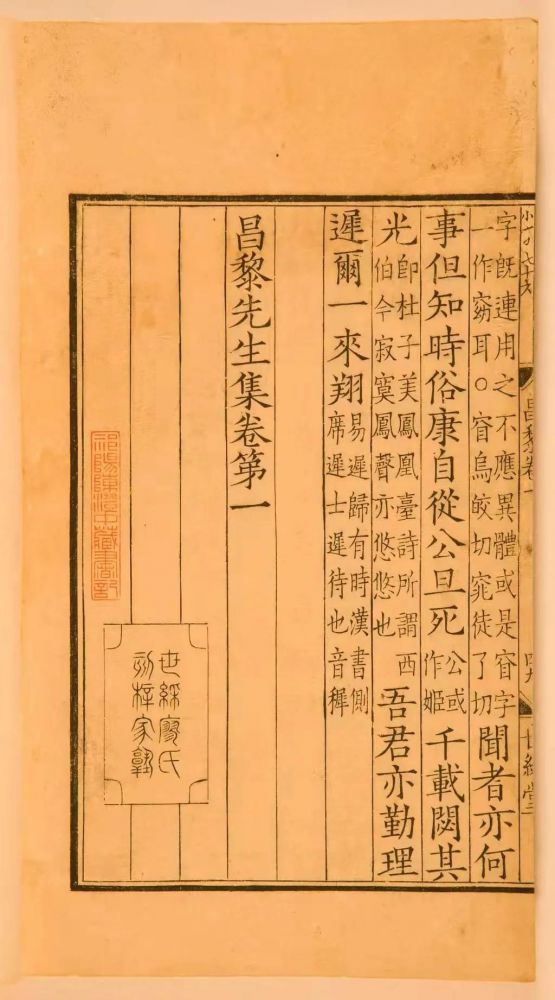 昌黎卷一
四九
世綵堂
字旣連用之不應異體或是窅字
一作窈耳○窅烏皎切窕徒了切
聞者亦何
事但知時俗康自從公旦死
公或
作姬
千載閟其
光
卽杜子美鳳凰臺詩所謂西
伯今寂寞鳳聲亦悠悠也
吾君亦勤理
遲爾一來翔
易遲歸有時漢書側
席遲士遲待也音穉
昌黎先生集卷第一
世綵廖氏
刻梓家塾
祁陽陳澄中藏書記